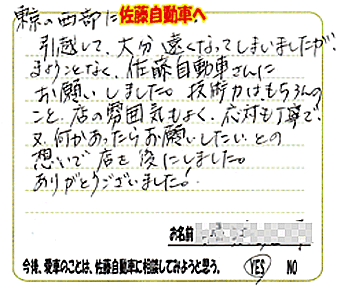 東京の西部に 佐藤自動車へ
引越して、大分遠くなってしまいましたが、
まようことなく、佐藤自動車さんに
お願いしました。技術力はもちろんの
こと、店の雰囲気もよく、応対も丁寧で、
又、何かあったらお願いしたい、との
想いで店を後にしました。
ありがとうございました!
お名前
今後、愛車のことは、佐藤自動車に相談してみようと思う。 YES NO